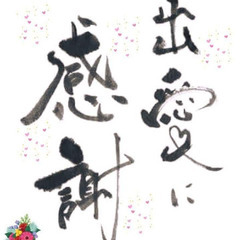 出愛に
感謝